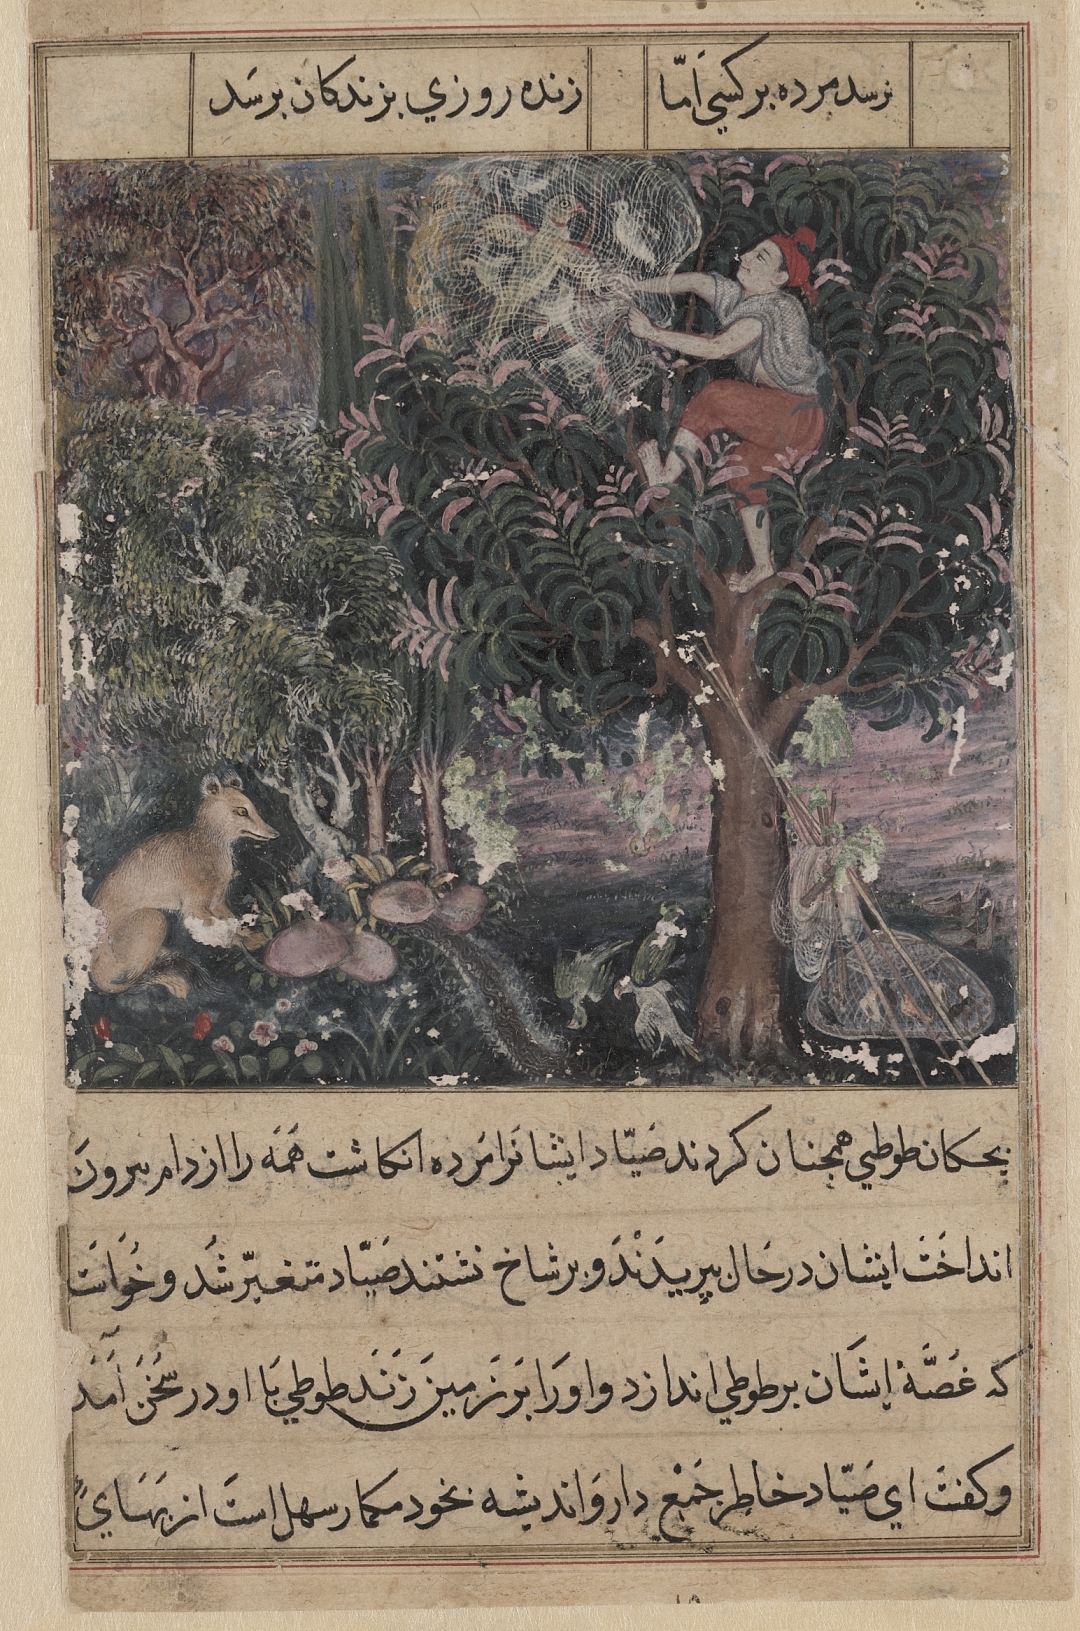 نرسد مرده بر کسي اَمّا زنده روزي بزندکان برسَد
بچکان طوطي همچنان کردند صَیّاد ایشانرا مَرده انکاشت هَمَه را از دام بیرون
انداخَتَ ایشان در حَال بپریدَنْدَ و بر شاخ نشتند صَیّاد متغیّر شُد و خُواست
که غَصَّهٔ ایشَان بر طوطي اندازد و او رَا بَر زَمین زَنَد طوطي با او در سُخَن آمَد
و کفتَ اي صَیّاد خاطر جَمْع دار وَ اندیشه بخود مکمار سهل استَ از بَهَاي